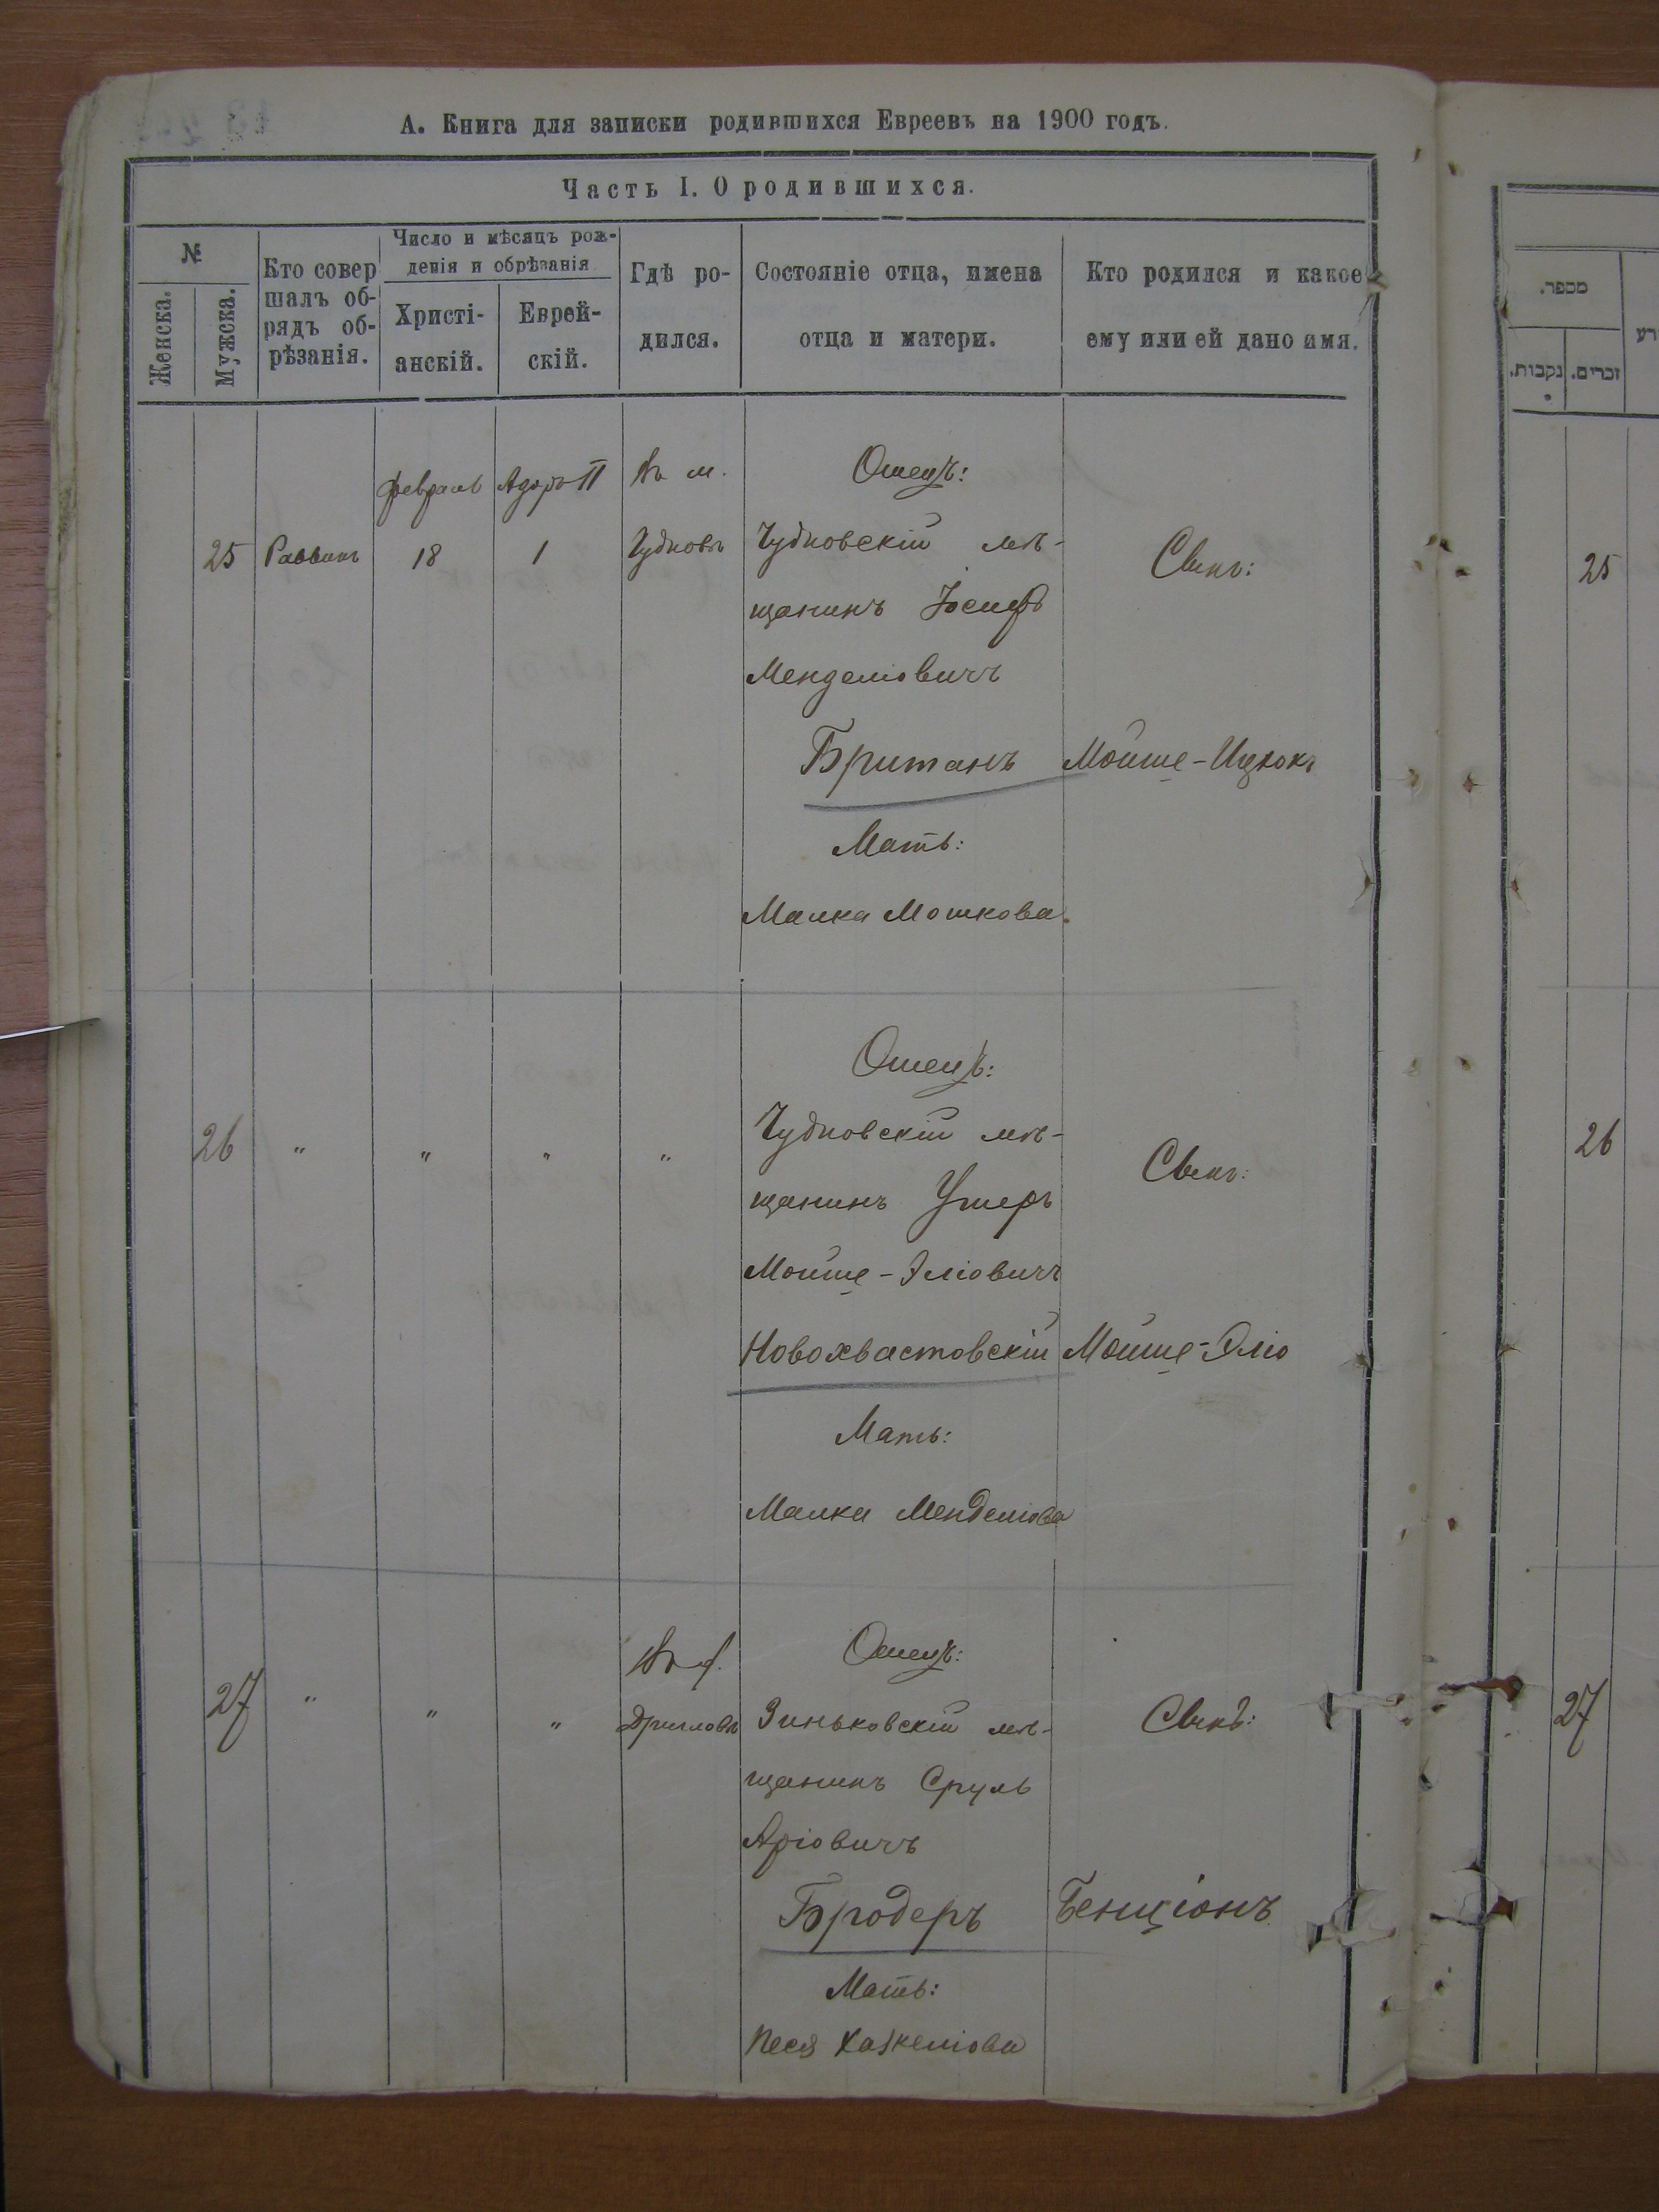 А. Книга для записки родившихся Евреевъ на 1900 годъ.
Часть I. О родившихся.
№
Женска.
Мужска.
Кто совер
шалъ об-
рядъ об-
рѣзанія.
Число и мѣсяцъ рож-
денія и обрѣзанія
Христі-
анскій.
Еврей-
скій.
Гдѣ ро-
дился.
Состояніе отца, имена
отца и матери.
Кто родился и какое
ему или ей дано имя.
25
Раввинъ
февраль
18
Адоръ II
1
Въ м.
Чудновъ
Отецъ:
Чудновскій мѣ-
щанинъ Іосифъ
Менделіовичъ
Британъ
Мать:
Малка Мошкова.
Сынъ:
Мойше-Ицхокъ
26
"
"
"
"
Отецъ:
Чудновскій мѣ-
щанинъ Ушеръ
Мойше-Эліовичъ
Новохвастовскій
Мать:
Малка Менделіова
Сынъ:
Мойше-Эліо
27
"
"
"
Въ
Дриглов
Отецъ:
Зиньковскій мѣ-
щанинъ Сруль
Аріовичъ
Бродеръ
Мать:
Песя Хаскеліова
Сынъ:
Бенціонъ
מספר.
נקבות.
זכרים.
25
26
27